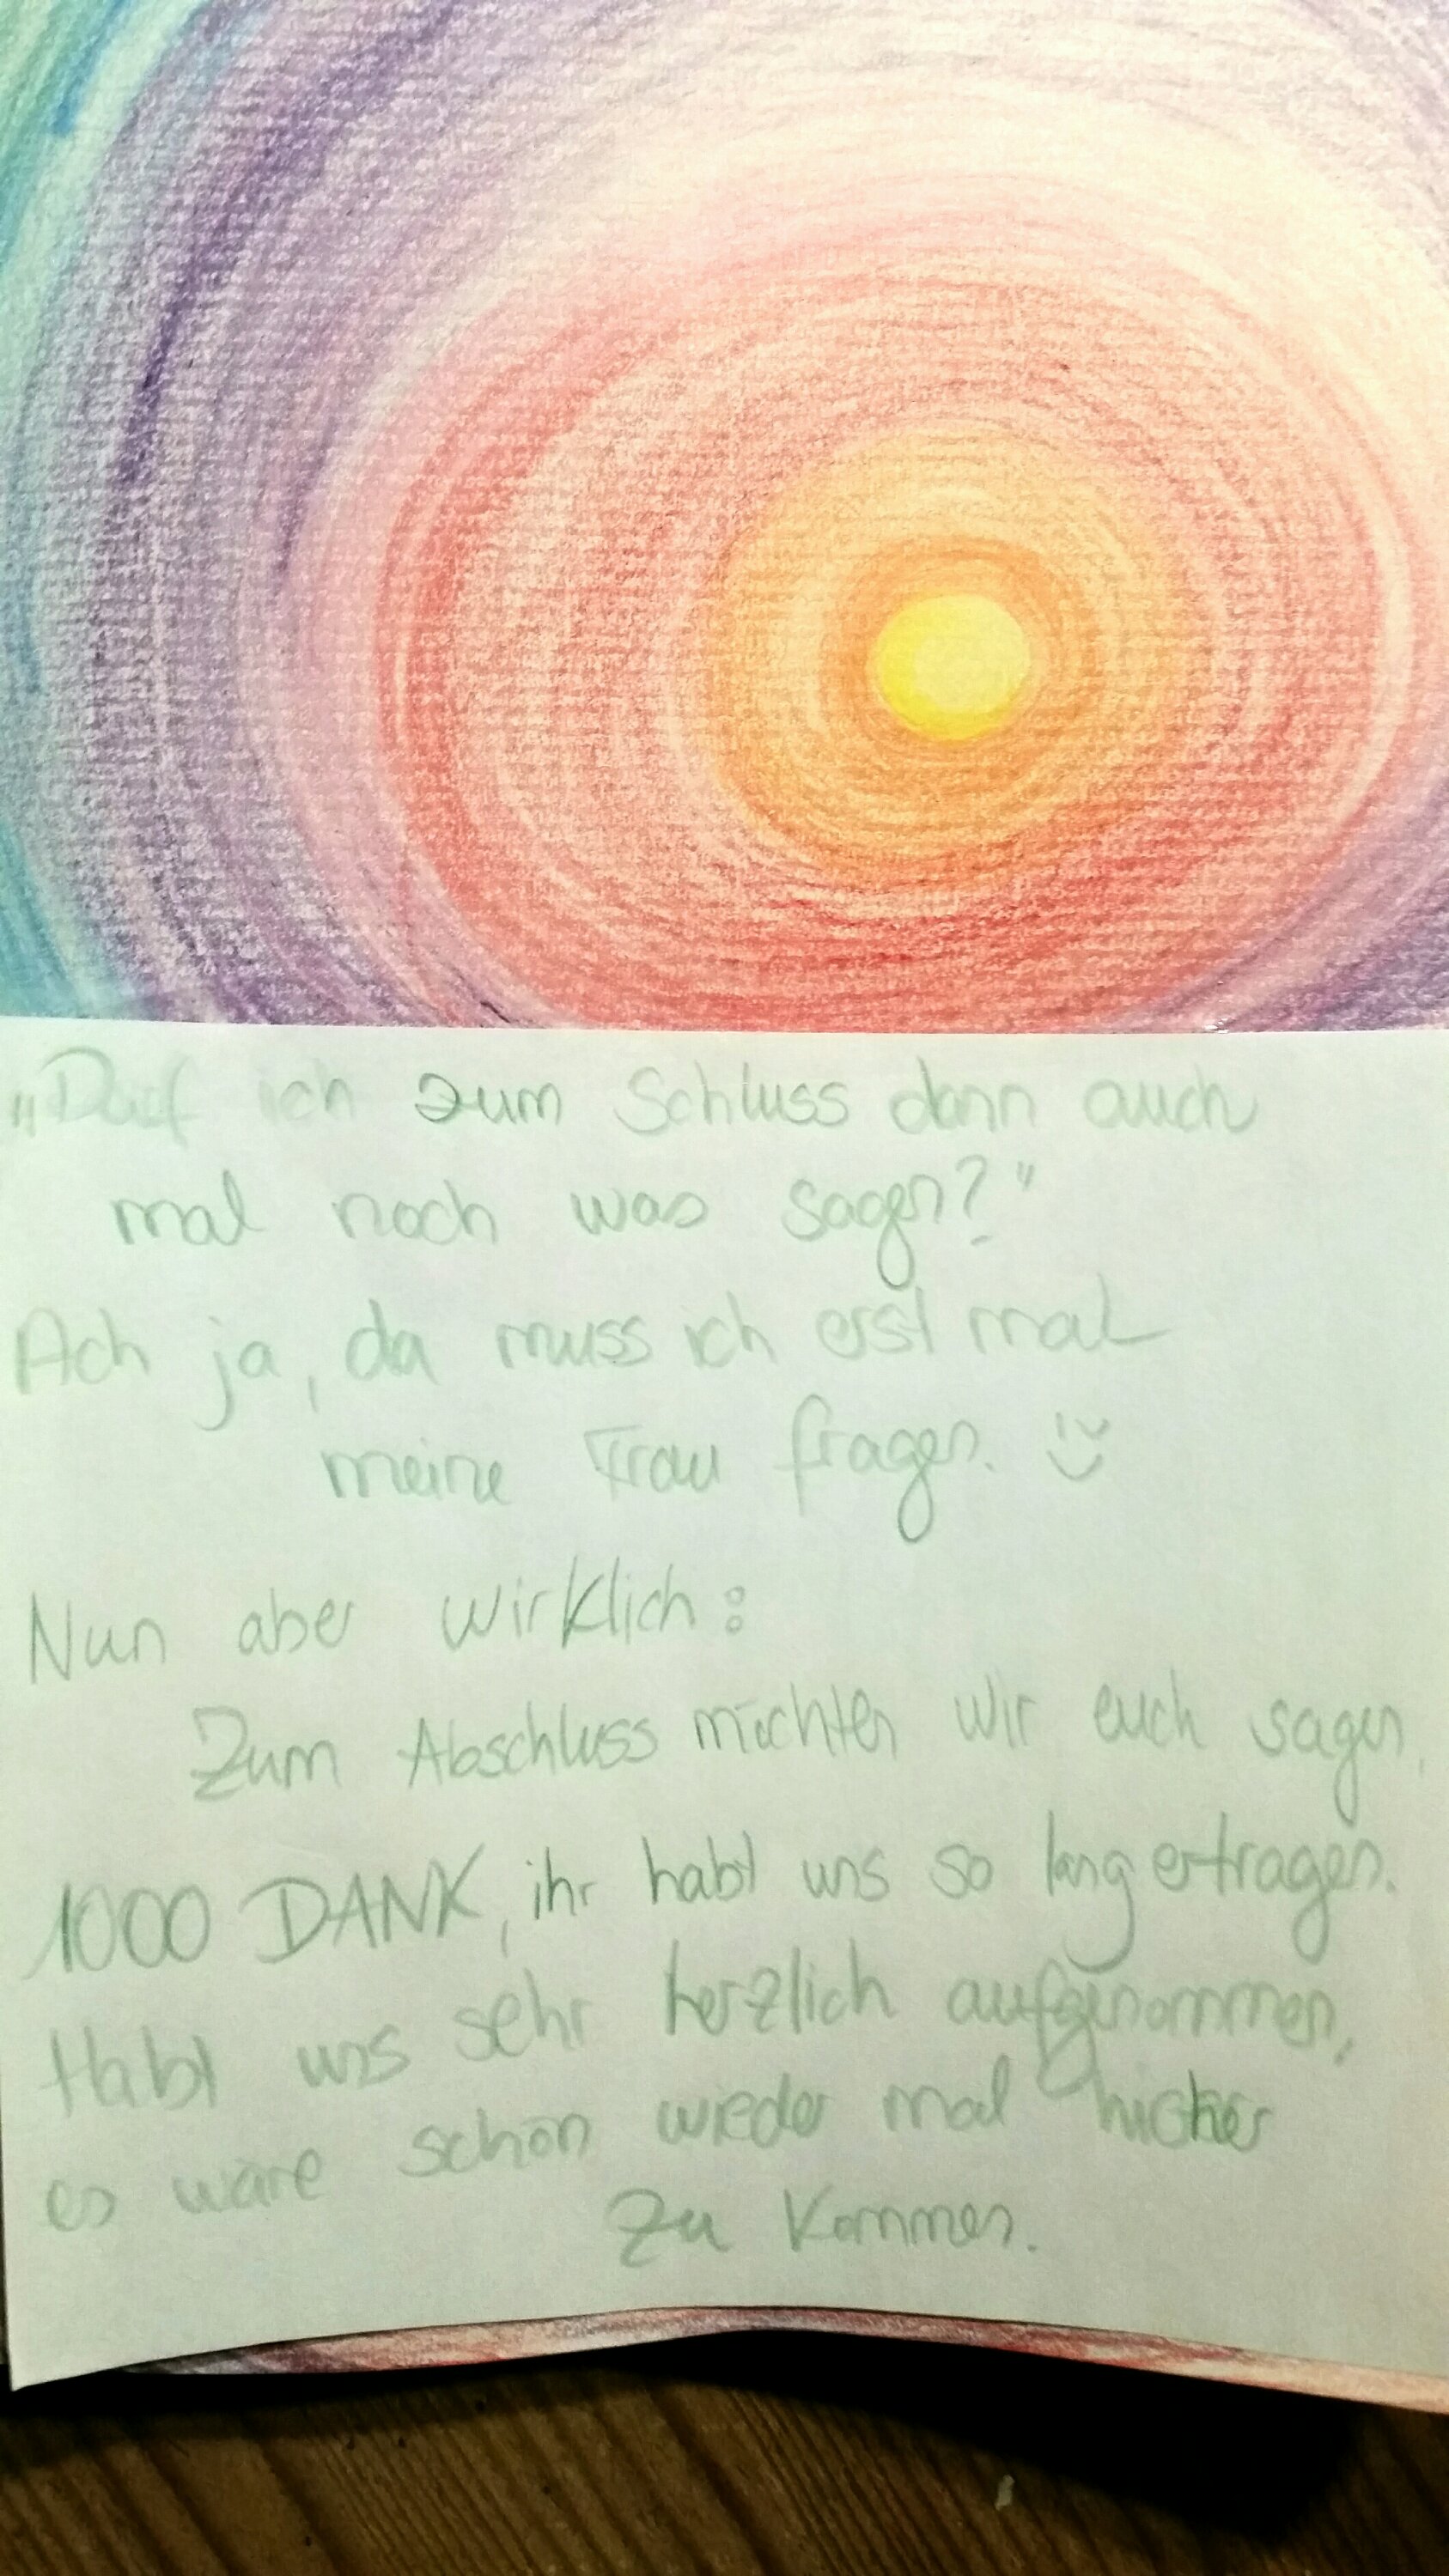 „Darf ich zum Schluss dann auch
mal noch was sagen?"
Ach ja, da muss ich erst mal
meine Frau fragen. :)
Nun aber wirklich:
Zum Abschluss möchten wir euch sagen,
1000 DANK, ihr habt uns so lang ertragen.
Habt uns sehr herzlich aufgenommen,
es wäre schön wieder mal hierher
zu kommen.